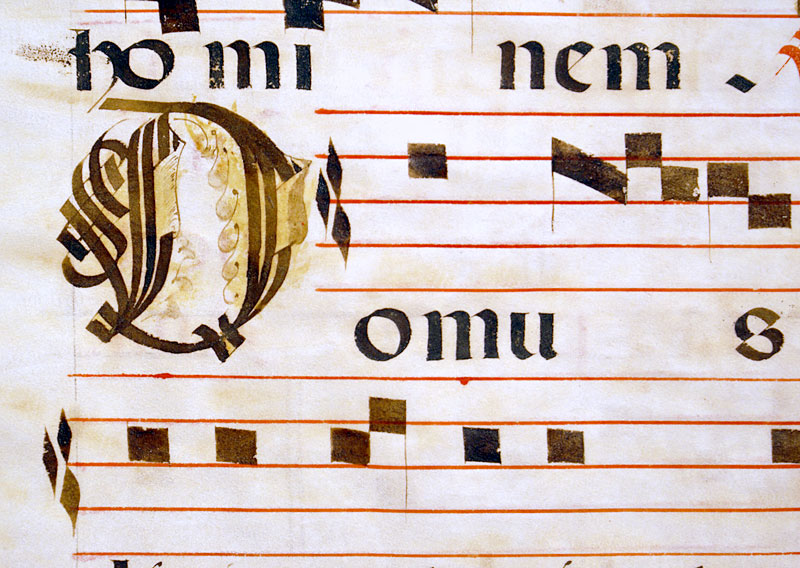 ho mi nem .
Domu s